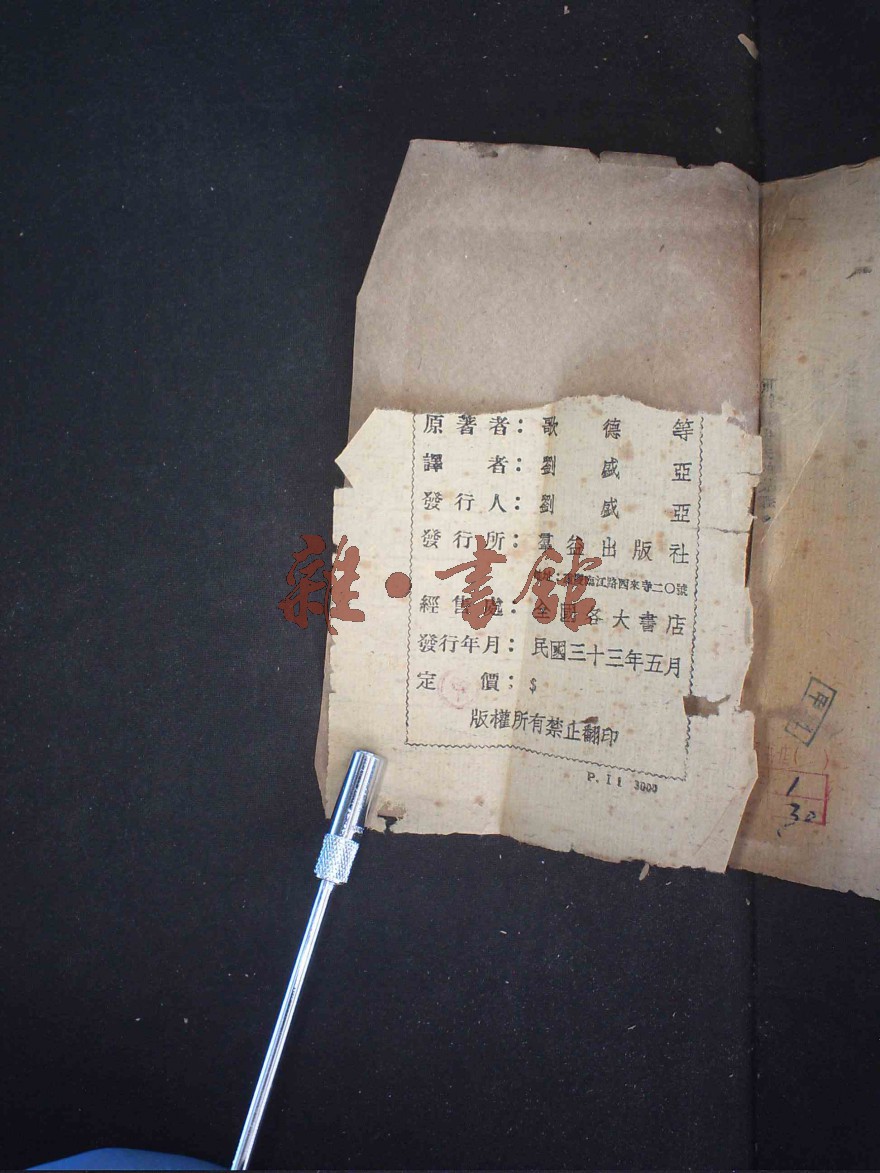 原著者：歌德等
譯者：劉盛亞
發行人：劉盛亞
發行所：羣益出版社
臨江路四來寺二〇號
經售處：全國各大書店
發行年月：民國三十三年五月
定價：$
版權所有禁止翻印
P. 11 3000
雜·書館
1
30